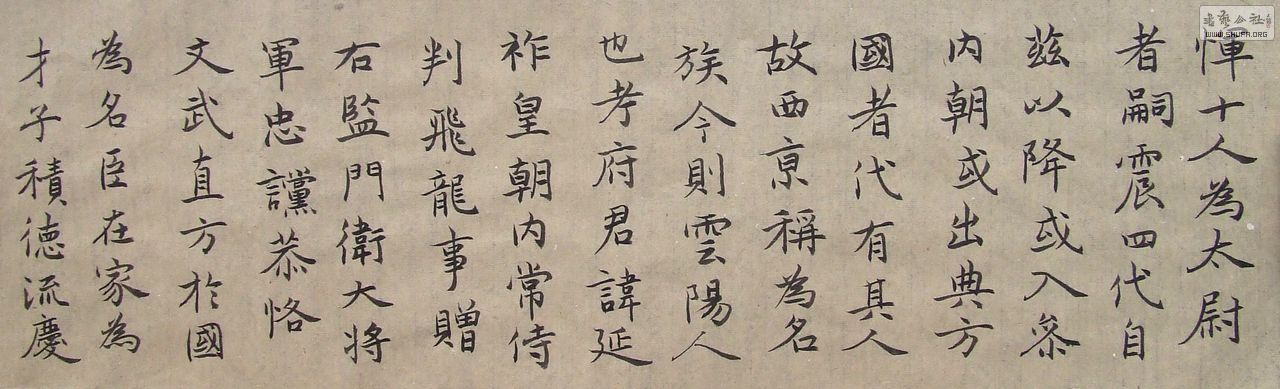 惲十人為太尉
者嗣震四代自
茲以降或入叅
内朝或出典方
國者代有其人
故西亰稱為名
族今則雲陽人
也考府君諱延
祚皇朝内常侍
判飛龍事贈
右監門衛大将
軍忠讜恭恪
文武直方於國
為名臣在家為
才子積徳流慶
書藝公社
WWW.SHUFA.ORG